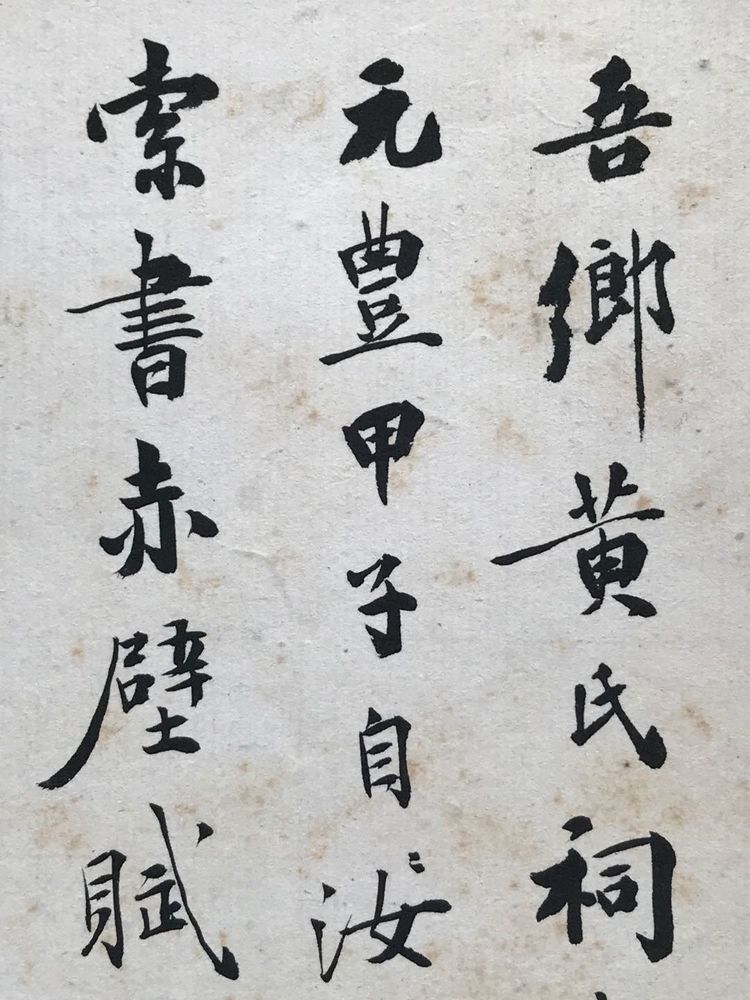 吾鄉黄氏祠
元豊甲子自汝
索書赤壁賦